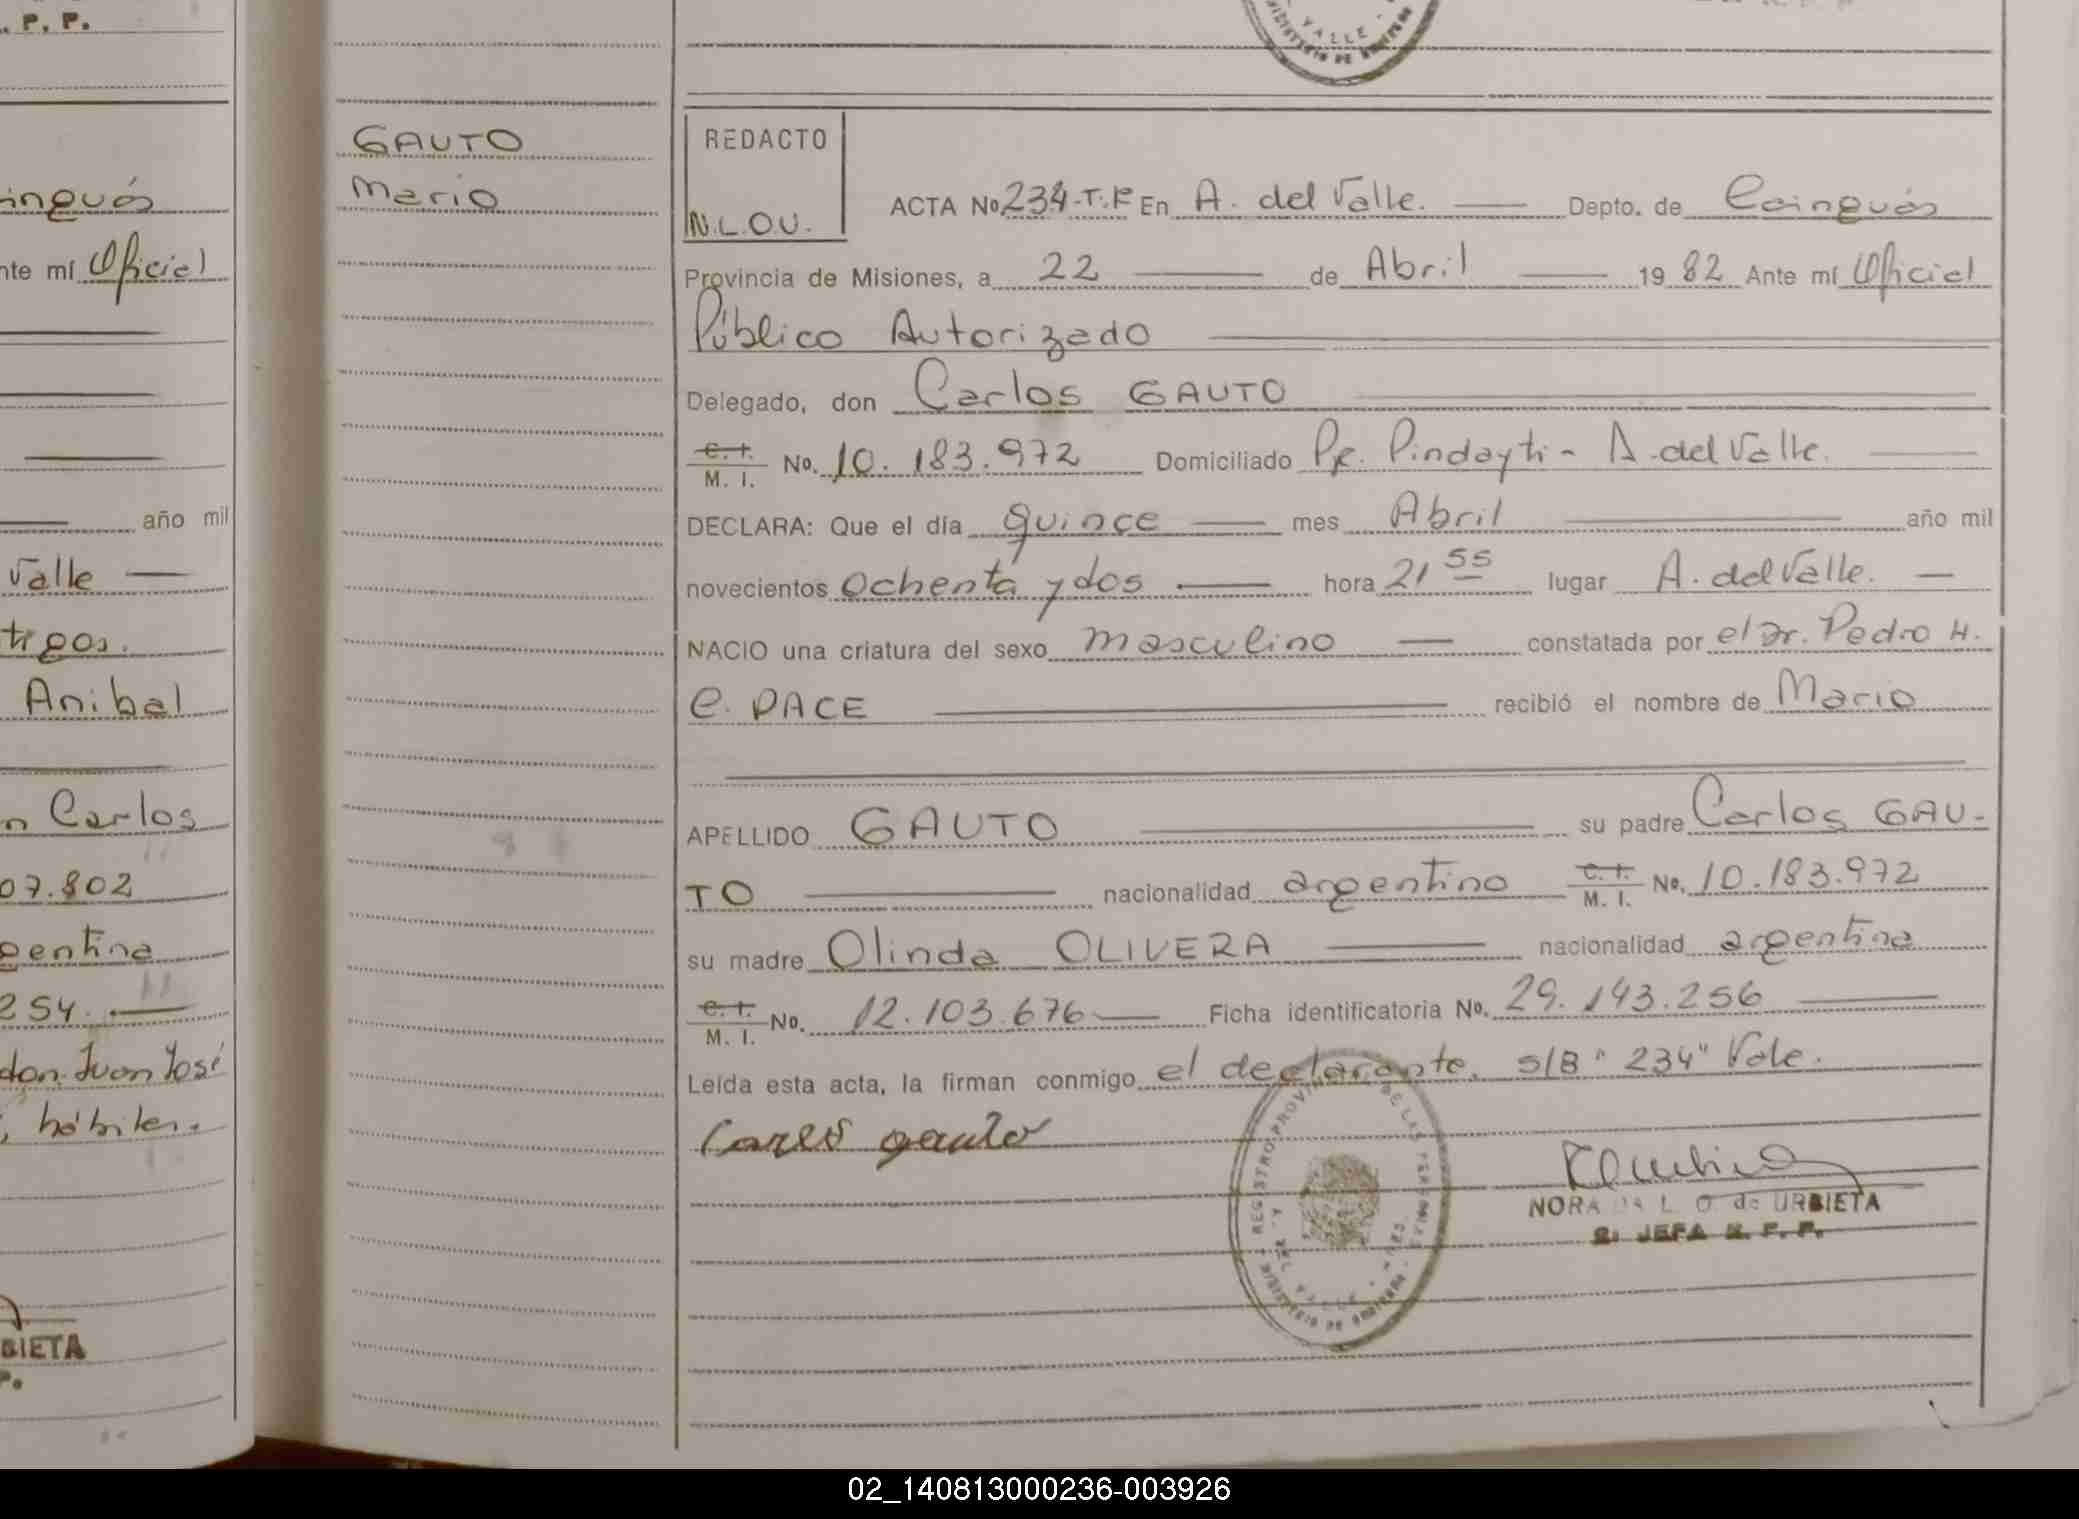 . P. P.
inguás
nte mí Oficial
año mil
Valle
tigos.
Anibal
n Carlos
07.802
gentina
254.
don Juan José
, hábiles.
BIETA
P.
GAUTO
Mario
REDACTO
N.L.O.U.
ACTA No. 234-T.F En A. del Valle. Depto. de Cainguás
Provincia de Misiones, a 22 de Abril 1982 Ante mí Oficial
Público Autorizado
Delegado, don Carlos GAUTO
C. I. M. I. No. 10.183.972 Domiciliado Pje. Pindayti - A. del Valle.
DECLARA: Que el día quince mes Abril año mil
novecientos ochenta y dos hora 21 55 lugar A. del Valle.
NACIO una criatura del sexo masculino constatada por el Dr. Pedro H.
C. PACE recibió el nombre de Mario
APELLIDO GAUTO su padre Carlos GAU-
TO nacionalidad argentino C. I. M. I. No. 10.183.972
su madre Olinda OLIVERA nacionalidad argentina
C. I. M. I. No. 12.103.676 Ficha identificatoria No. 29.143.256
Leída esta acta, la firman conmigo el declarante. S/B "234" Vale.
Carlos Gauto
NORA L. O. de URBIETA
JEFA R. P. P.
REGISTRO PROVINCIAL DE LAS PERSONAS
DEL VALLE
MINISTERIO DE GOBIERNO
VALLE
MINISTERIO DE GOBIERNO
02_140813000236-003926